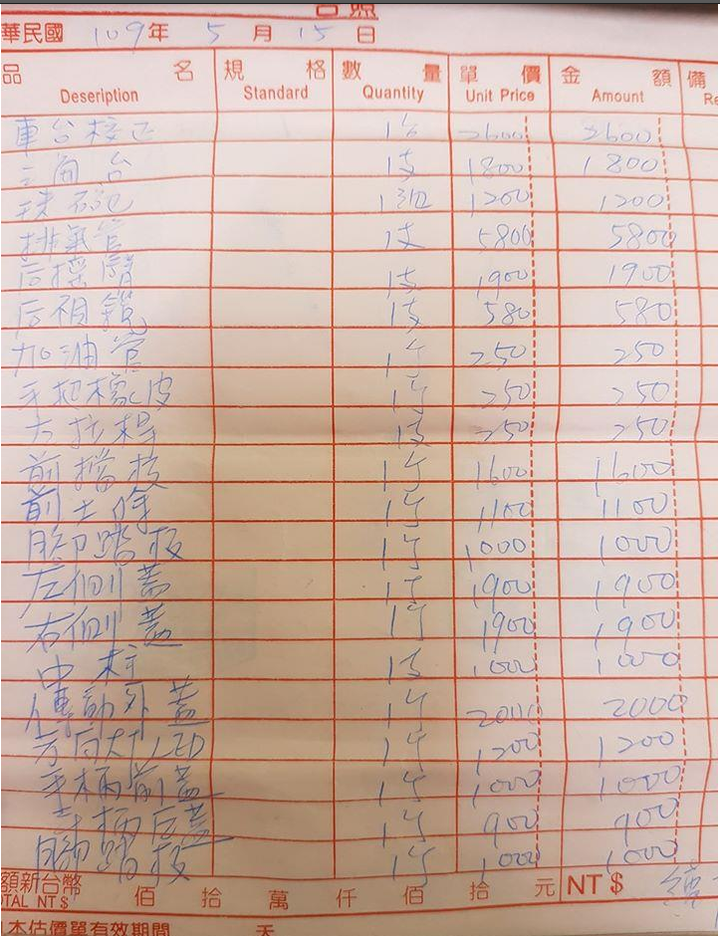 台照
華民國 109年 5月 15日
品名 規格 數量 單價 金額 備
Deseription Standard Quantity Unit Price Amount Re
車台校正 1台 2600 2600
三角台 1支 1800 1800
珠碗 1組 1200 1200
排氣管 1支 5800 5800
后搖臂 1支 1900 1900
后視鏡 1支 580 580
加油管 1个 250 250
手把橡皮 1个 250 250
大拉桿 1支 250 250
前擋板 1个 1600 1600
前土除 1个 1100 1100
腳踏板 1个 1000 1000
左側蓋 1个 1900 1900
右側蓋 1个 1900 1900
中柱 1支 1000 1000
傳動外蓋 1个 2000 2000
方向灯LED 1个 1200 1200
手柄前蓋 1个 1000 1000
手柄后蓋 1个 900 900
腳踏板 1个 1000 1000
額新台幣 佰 拾 萬 仟 佰 拾 元 NT$ 續
OTAL NT$
本估價單有效期間 天